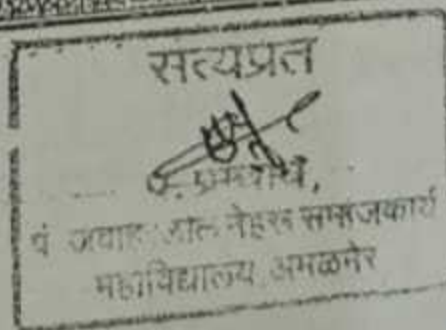 सत्यप्रत
प्राचार्य,
पं जवाहरलाल नेहरू समाजकार्य
महाविद्यालय, अमळनेर